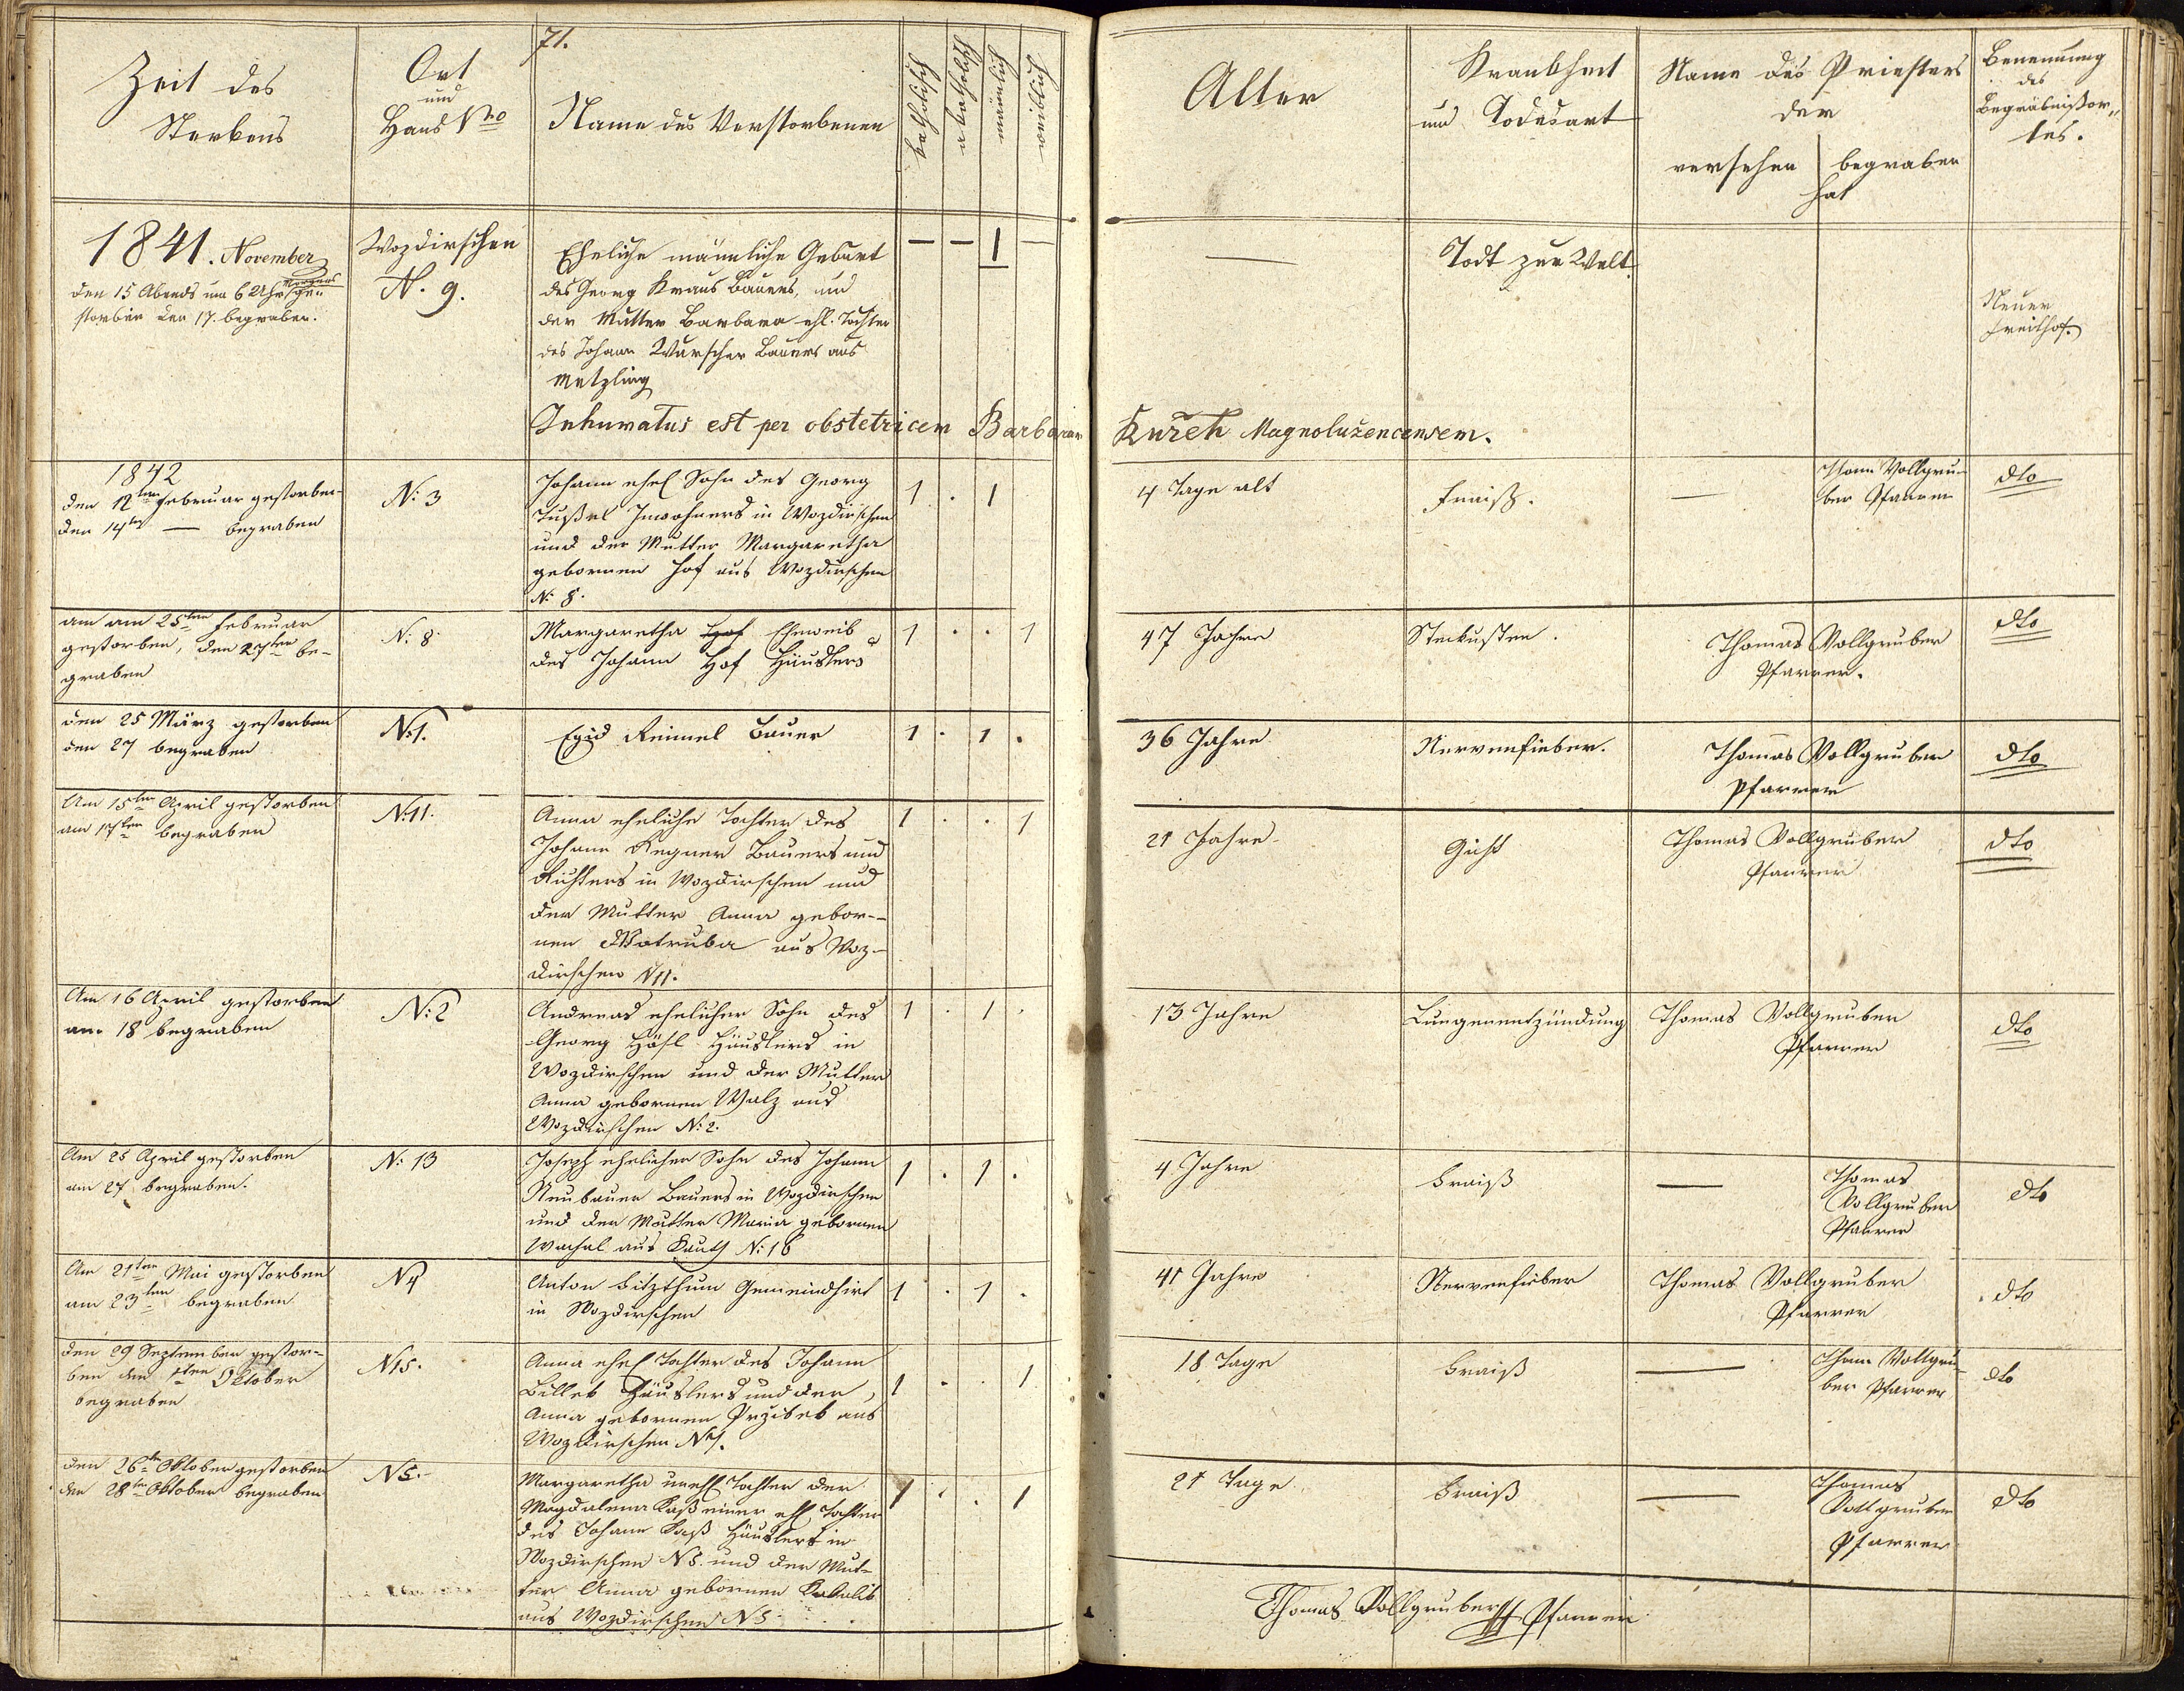 71.
Zeit des
Sterbens
Ort
und
Haus Nro
Name des Verstorbenen
katholisch
akatholisch
männlich
weiblich
Alter
Krankheit
und Todesart
Name des Priesters
der
versehen
begraben
hat
Benennung
des
Begräbnißor„
tes.
1841. November
den 15 Abends um 6 Uhr ge„
storben den 17. begraben.
Wozdirschen
N. 9.
Eheliche männliche Geburt
des Georg Kraus Bauers, und
der Mutter Barbara ehl. Tochter
des Johann Wurscher Bauers aus
Metzling
— — 1 —
—
Todt zur Welt
Neuer
Freithof.
Inhumatus est per obstetricem Barbaram Kuřeh Magnolužencensem.
1842
den 12ten Februar gestorben
den 14ten — begraben
N: 3
Johann ehel Sohn des Georg
Tußel Inwohners in Wozdirschen
und der Mutter Margaretha
gebornen Hof aus Wozdirschen
N: 8.
1 . 1
4 Tage alt
Fraiß.
—
Thom Vollgru-
ber Pfarrer
dto
am am 25ten Februar
gestorben, den 27ten be-
graben
N: 8
Margaretha Hof Eheweib
des Johann Hof Häuslers
1 . . 1
47 Jahre
Steckusten.
Thomas Vollgruber
Pfarrer.
dto
den 25 März gestorben
den 27 begraben
N:1.
Egid Reimel Bauer
1 . 1 .
36 Jahre
Nervenfieber.
Thomas Vollgruber
Pfarrer
dto
Am 15ten April gestorben
am 17ten begraben
N:11.
Anna eheliche Tochter des
Johann Regner Bauers und
Richters in Wozdirschen und
der Mutter Anna gebor-
nen Motruba aus Woz-
dirschen N11.
1 . . 1
21 Jahre
Gicht
Thomas Vollgruber
Pfarrer
dto
Am 16 April gestorben
am 18 begraben
N:2
Andreas ehelicher Sohn des
Georg Hösl Häuslers in
Wozdirschen und der Mutter
Anna gebornen Walz aus
Wozdirschen N:2.
1 . 1 .
13 Jahre
Lungenentzündung
Thomas Vollgruber
Pfarrer
dto
Am 25 April gestorben
am 27 begraben.
N: 13
Joseph ehelicher Sohn des Johann
Neubauer Bauers in Wozdirschen
und der Mutter Maria gebornen
Wachal aus Kauth N:16
1 . 1 .
4 Jahre
Fraiß
—
Thomas
Vollgruber
Pfarrer
dto
Am 21ten Mai gestorben
am 23ten begraben
N4
Anton Fitzthum Gemeindhirt
in Wozdirschen
1 . 1 .
41 Jahre
Nervenfieber
Thomas Vollgruber
Pfarrer
dto
den 29 September gestor-
ben den 1ten Oktober
begraben
N15.
Anna ehel Tochter des Johann
Billek Häuslers und der
Anna gebornen Przibek aus
Wozdirschen
1 . . 1
18 Tage
Fraiß
—
Thom Vollgru-
ber Pfarrer
dto
den 26ten Oktober gestorben
den 28ten Oktober begraben
N5.
Margaretha unehl Tochter der
Magdalena Kaß einer ehl Tochter
des Johann Kaß Häuslers in
Wozdirschen N5. und der Mut-
ter Anna gebornen
aus Wozdirschen N5
1 . . 1
21 Tage
Fraiß
—
Thomas
Vollgruber
Pfarrer
dto
Thomas Vollgruber Pfarrer